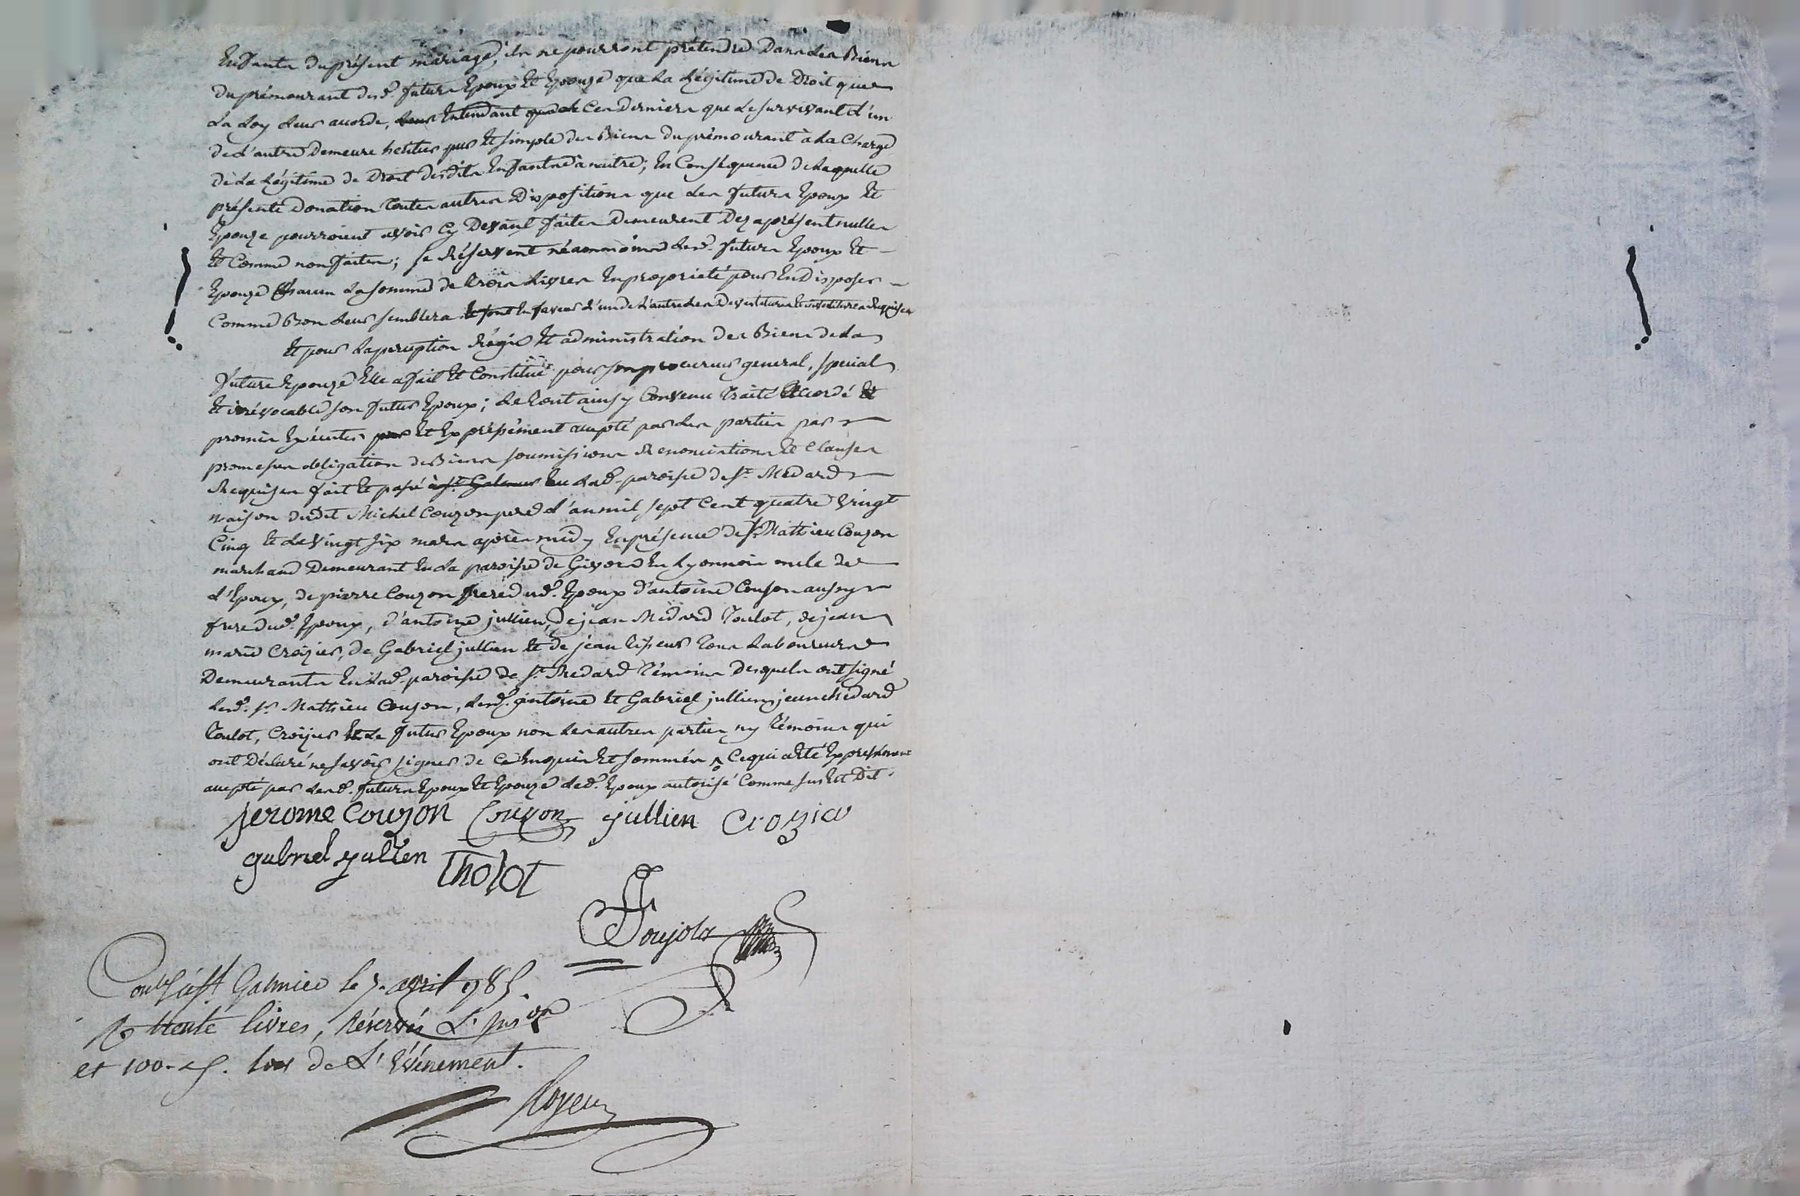 Enfants du présent mariage, ils ne pourront prétendre dans les Biens
du prémourant desd. futurs Epoux et Epouze que La Légitime de Droit que
La Loy leur acorde, Entendant ces derniers que Le survivant d'un
de L'autre Demeure héritier pur et simple des Biens du prémourant à La Charge
de La Légitime de Droit desdits Enfants à naitre; En Conséquence de Laquelle
présente Donation toutes autres Dispositions que Les futurs Epoux et
Epouze pourroient avoir Cy Devant faites Demeurent Dez aprésent nulles
et Comme non faites; se Réservent néanmoins Lesd. futurs Epoux et
Epouze Chacun La somme de trois Livres En propriété pour En Disposer
Comme Bon Leur semblera
Et pour La perception Régie et administration des Biens de La
future Epouze Elle a fait et Constitué pour son procureur general, special
et irrévocable son futur Epoux; Le tout ainsy Convenu traité accordé et
promis Exécuter et Expressément accepté par Les parties par
promesses obligation de Biens soumissions Renonciations et Clauses
Requises fait et passé à St. Galmier En Lad. paroisse de St. Médard
maison dudit Michel Couzon pere L'an mil sept Cent quatre Vingt
Cinq et Le Vingt six mars après midy En présence de Sr. Mathieu Couzon
marchand Demeurant En La paroisse de Givors En Lyonnois oncle de
L'Epoux, de pierre Couzon frere dud. Epoux d'antoine Couzon aussy
frere dud. Epoux, d'antoine jullien, de jean Médard Toulot, de jean
marie Crozier, de Gabriel jullien et de jean tous Laboureurs
Demeurants En Lad. paroisse de St. Medard témoins Desquels ont signé
Led. sr Mathieu Couzon, Lesd. antoine et Gabriel jullien, jean Médard
Toulot, Crozier et Le futur Epoux non Les autres parties ny témoins qui
ont Déclaré ne savoir signer de Ce Enquis et sommés Ce qui a été Expressément
accepté par Lesd. futurs Epoux et Epouze Led. Epoux autorisé Comme sus Est Dit
jerome Couzon Couzon jullien crozier
gabriel jullien Tholot
Poujols
Conlé à St Galmier le 7. avril 1785
R trente livres, Réservés L'insion
et 100. s. lors de L'Evénement.
Royeux